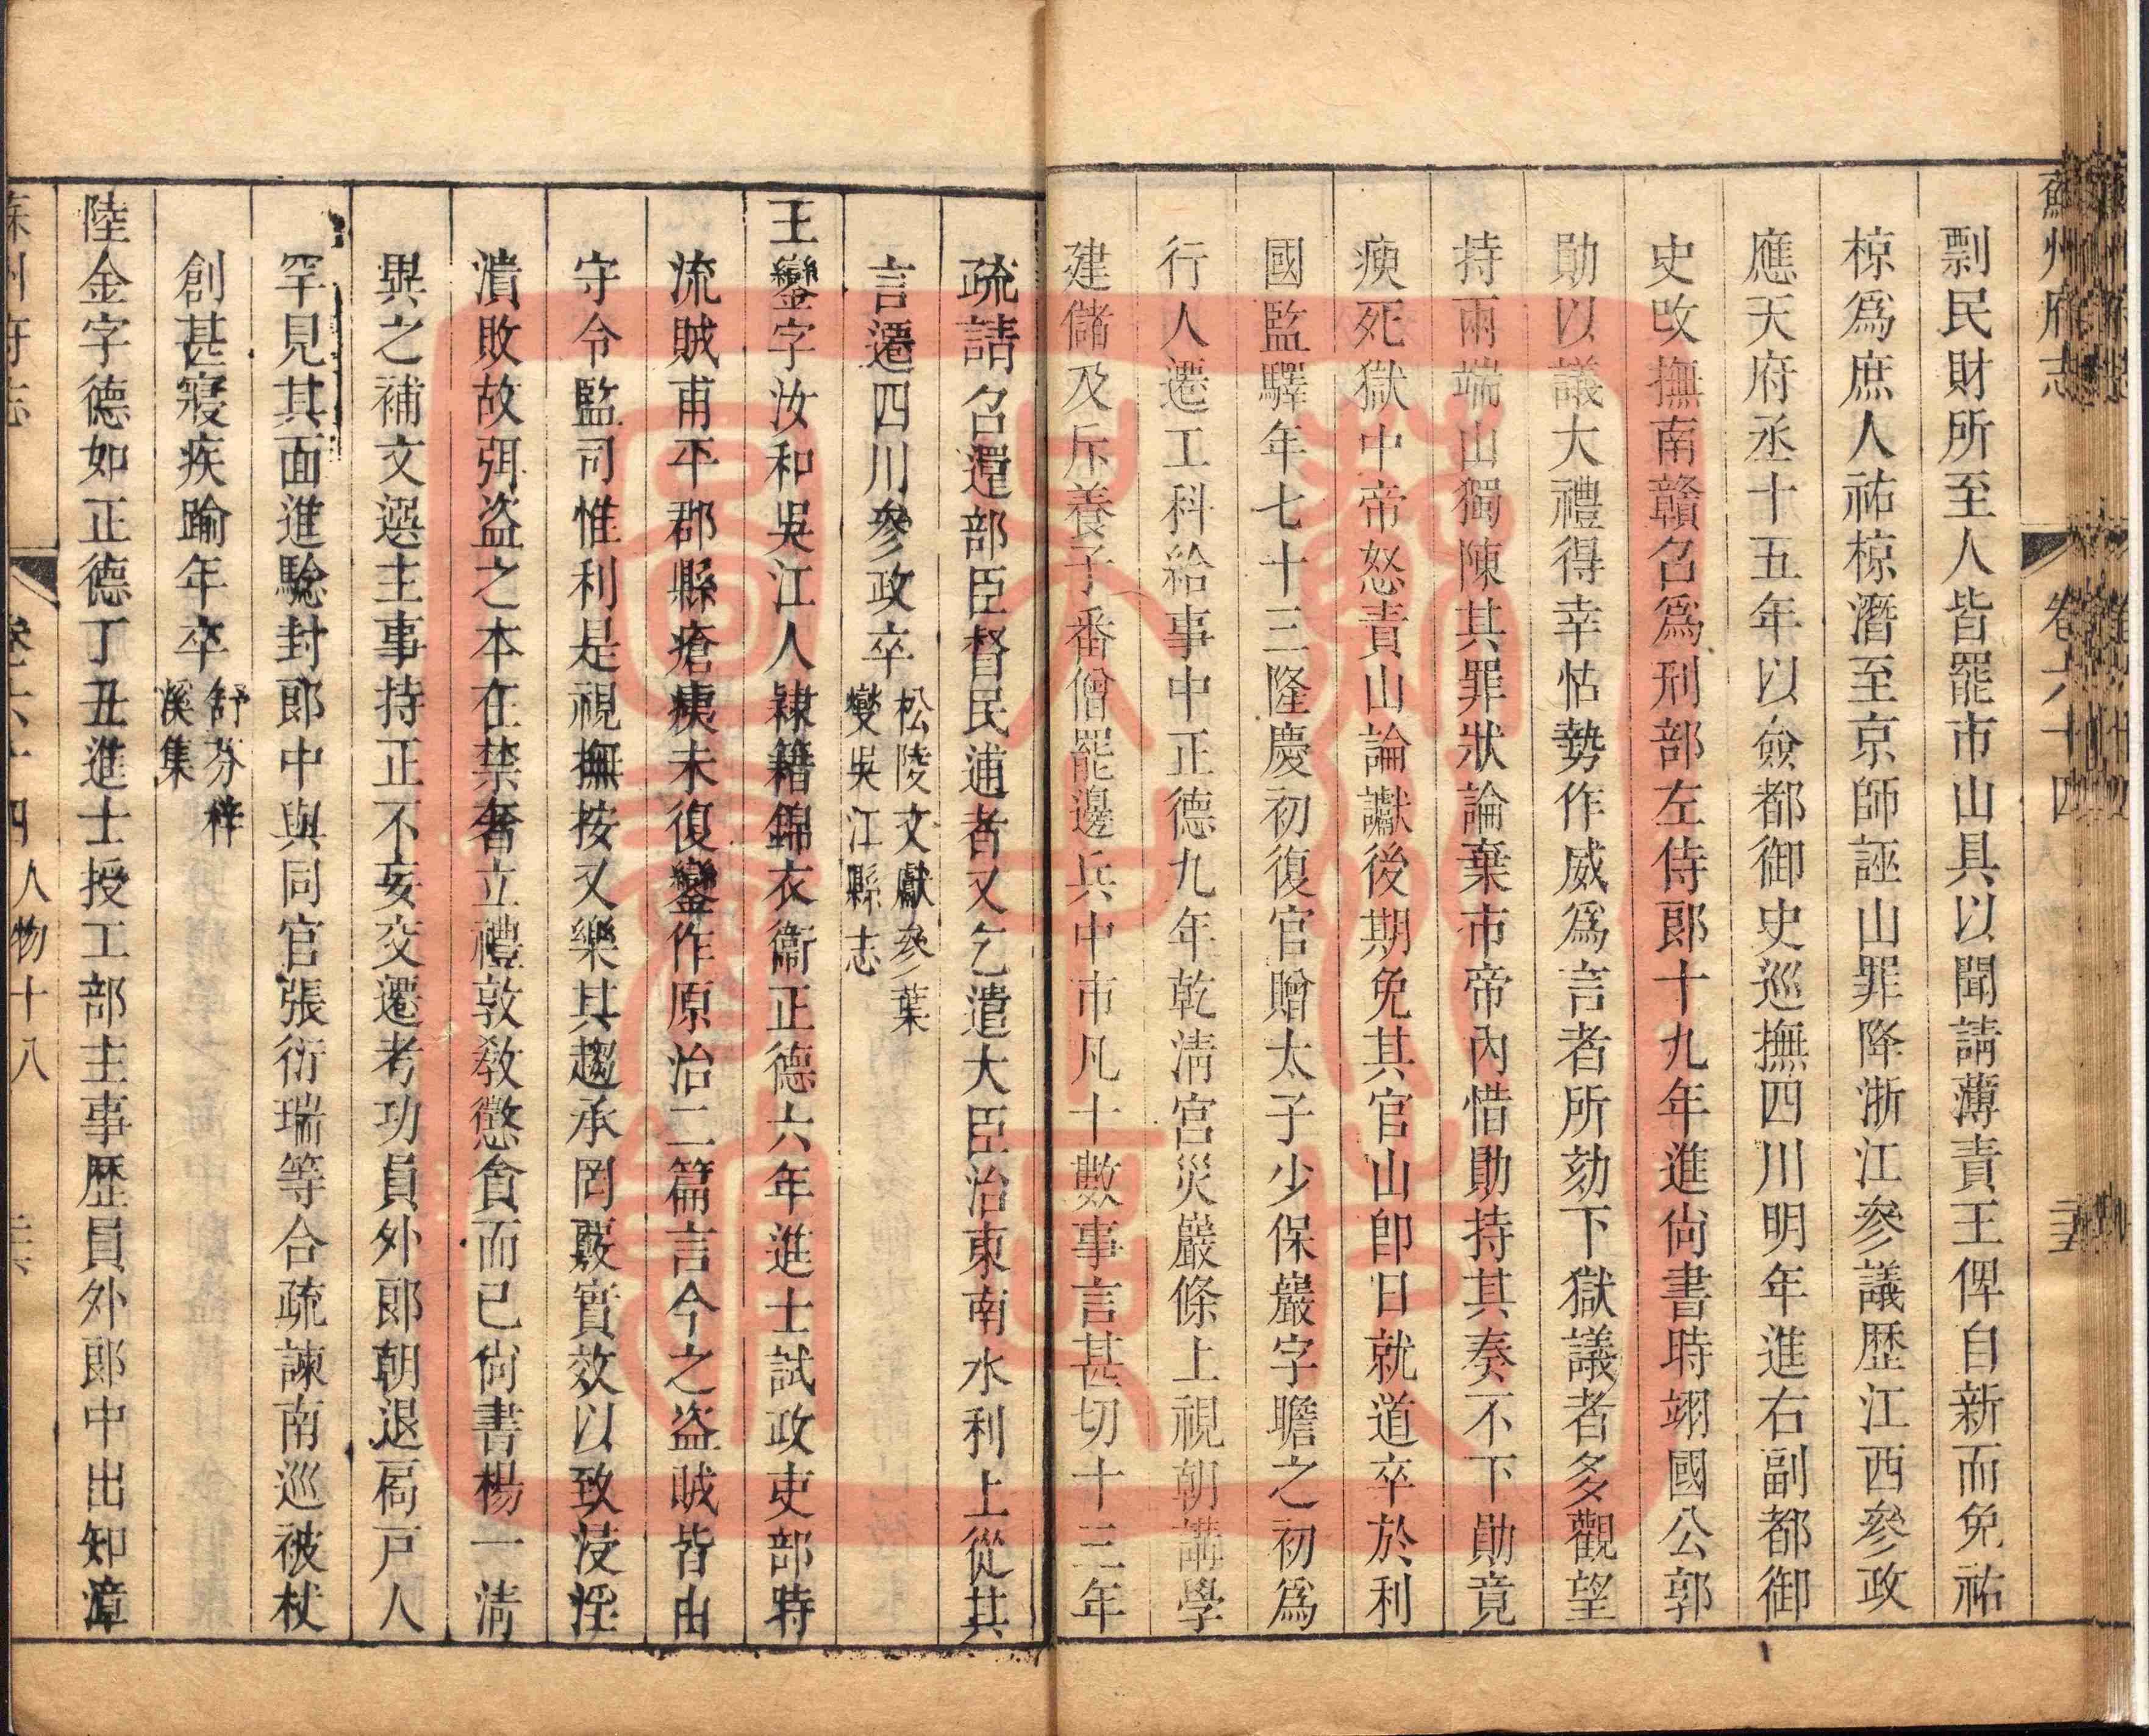 蘇州府志 卷六十四 三五
剽民財所至人皆罷市山具以聞請薄責王俾自新而免祐
椋爲庶人祐椋潛至京師誣山罪降浙江參議歷江西參政
應天府丞十五年以僉都御史巡撫四川明年進右副都御
史改撫南贛召爲刑部左侍郎十九年進尙書時翊國公郭
勛以議大禮得幸怙勢作威爲言者所劾下獄議者多觀望
持兩端山獨陳其罪狀論棄市帝內惜勛持其奏不下勛竟
瘐死獄中帝怒責山論讞後期免其官山卽日就道卒於利
國監驛年七十三隆慶初復官贈太子少保巖字瞻之初爲
行人遷工科給事中正德九年乾淸宮災巖條上視朝講學
建儲及斥養子番僧罷邊兵中市凡十數事言甚切十三年
疏請召還部臣督民逋者又乞遣大臣治東南水利上從其
言遷四川參政卒松陵文獻參葉
燮吳江縣志
王鑾字汝和吳江人隸籍錦衣衞正德六年進士試政吏部時
流賊甫平郡縣瘡痍未復鑾作原治二篇言今之盜賊皆由
守令監司惟利是視撫按又樂其趨承罔覈實效以致浸淫
潰敗故弭盜之本在禁奢立禮敦敎懲貪而已尙書楊一淸
異之補文選主事持正不妄交遷考功員外郎朝退扃戸人
罕見其面進驗封郎中與同官張衍瑞等合疏諫南巡被杖
創甚寢疾踰年卒舒芬梓
溪集
陸金字德如正德丁丑進士授工部主事歷員外郎中出知漳
蘇州府志 卷六十四人物十八 三六